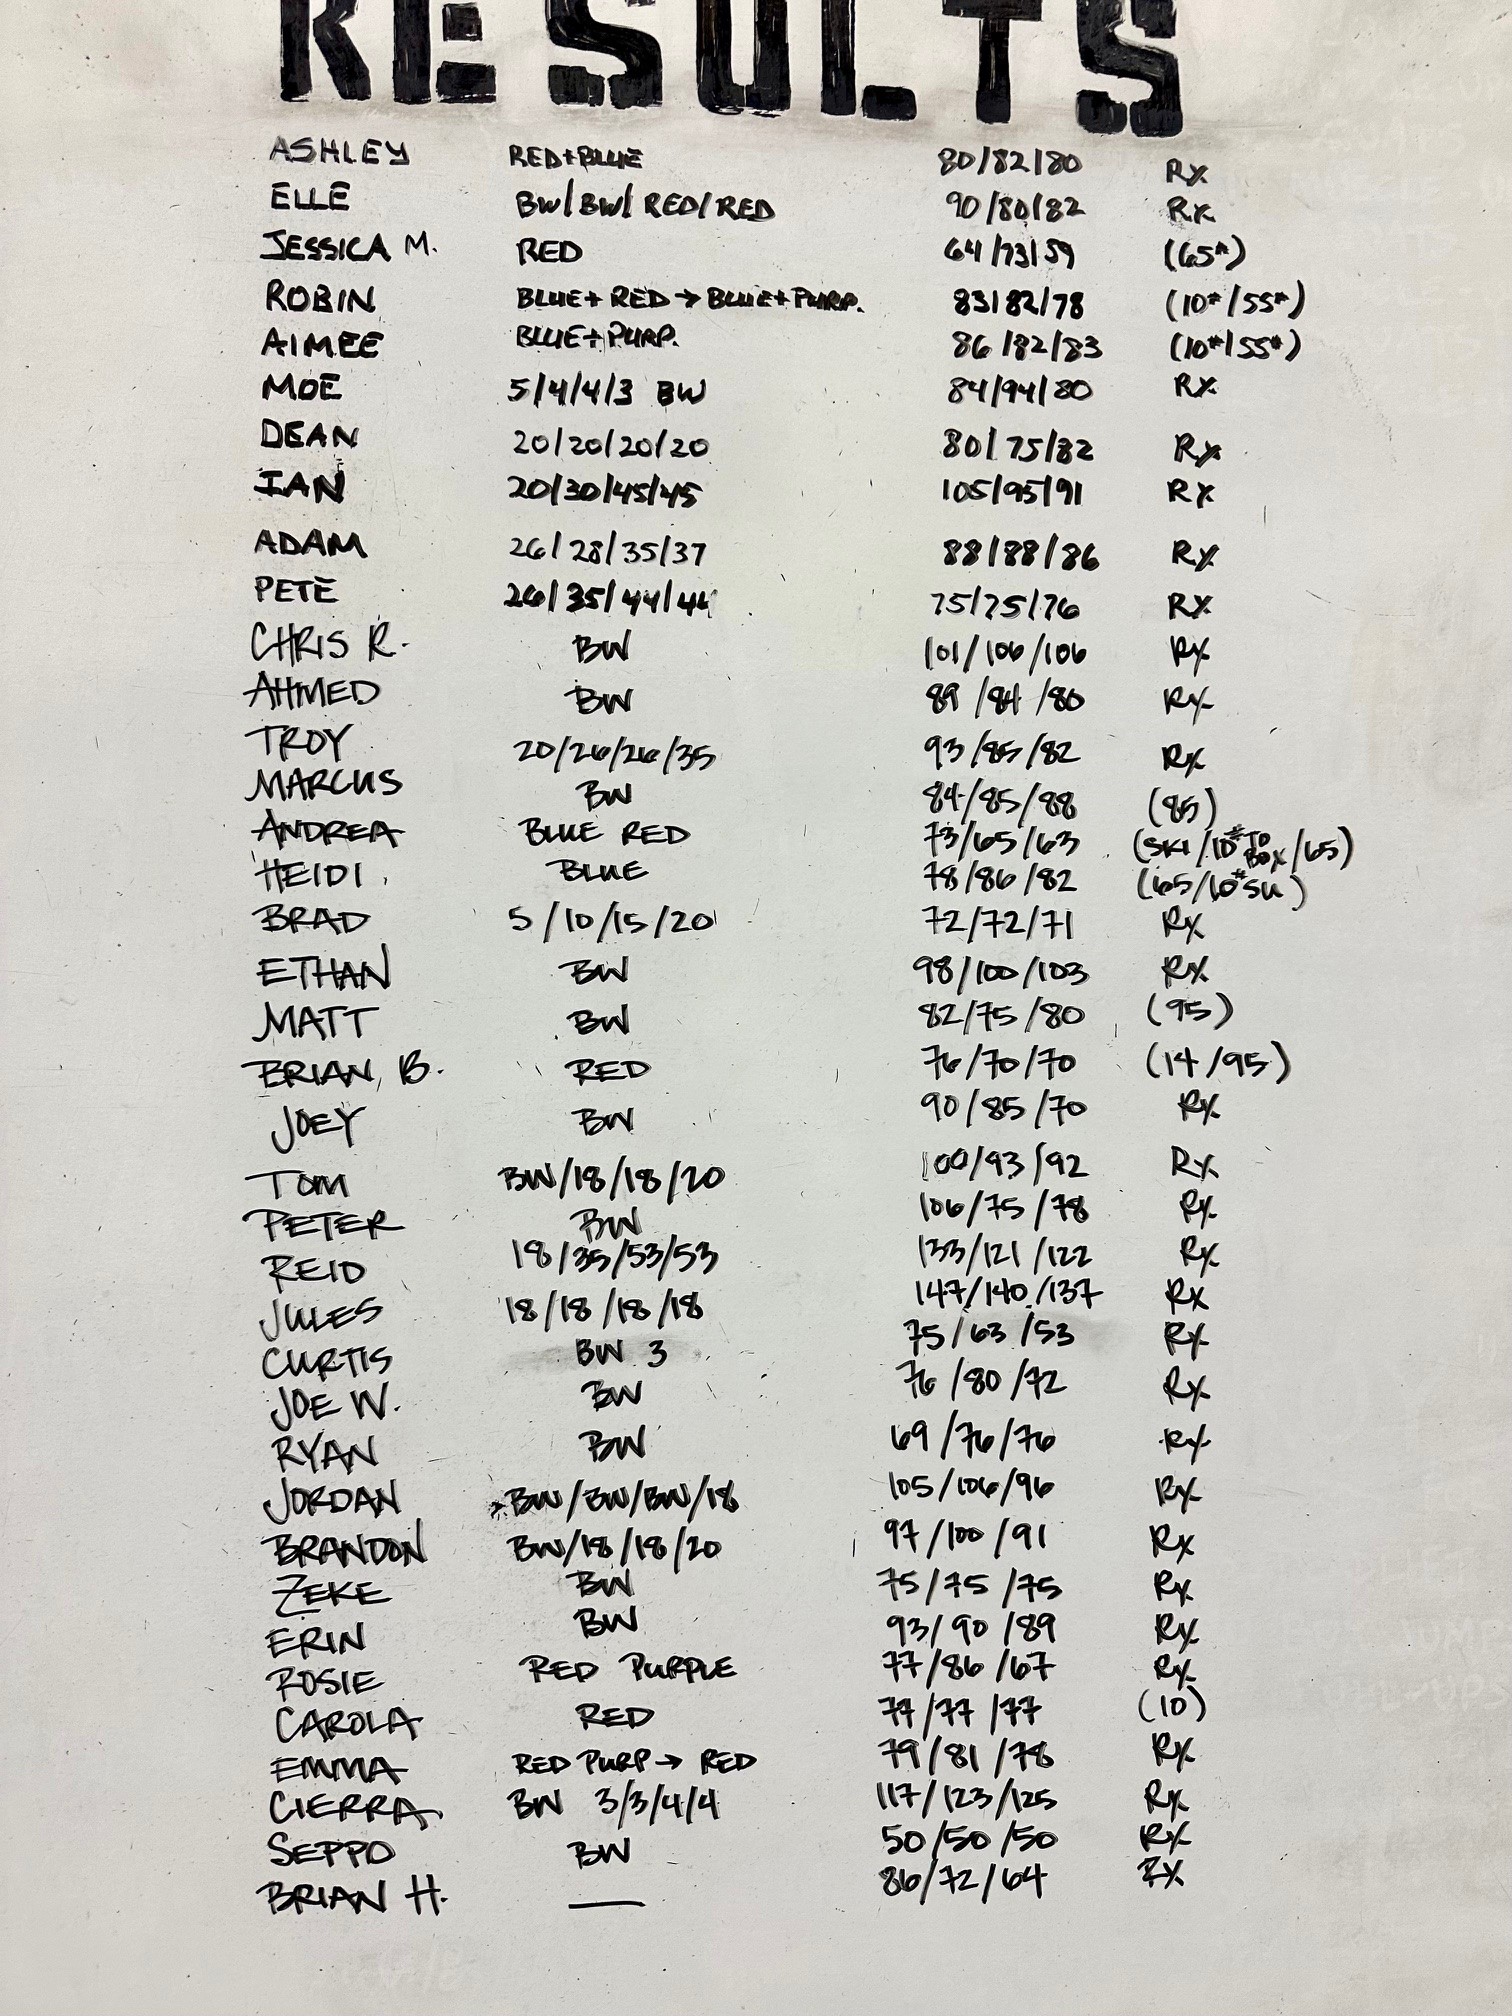 RESULTS
ASHLEY RED+BLUE 80/82/80 Rx
ELLE BW/BW/RED/RED 90/80/82 Rx
JESSICA M. RED 64/73/59 (65#)
ROBIN BLUE+RED→BLUE+PURP. 83/82/78 (10#/55#)
AIMEE BLUE+PURP. 86/82/83 (10#/55#)
MOE 5/4/4/3 BW 84/94/80 Rx
DEAN 20/20/20/20 80/75/82 Rx
IAN 20/30/45/45 105/95/91 Rx
ADAM 26/28/35/37 88/88/86 Rx
PETE 26/35/44/44 75/75/76 Rx
CHRIS R. BW 101/106/106 Rx
AHMED BW 89/84/80 Rx
TROY 20/26/26/35 93/85/82 Rx
MARCUS BW 84/85/88 (85)
ANDREA BLUE RED 73/65/63 (SKI/10# TO BOX/65)
HEIDI BLUE 78/86/82 (65/10# SU)
BRAD 5/10/15/20 72/72/71 Rx
ETHAN BW 98/100/103 Rx
MATT BW 82/75/80 (95)
BRIAN B. RED 76/70/70 (14/95)
JOEY BW 90/85/70 Rx
TOM BW/18/18/20 100/93/92 Rx
PETER BW 106/75/78 Rx
REID 18/35/53/53 133/121/122 Rx
JULES 18/18/18/18 147/140/137 Rx
CURTIS BW 3 75/63/53 Rx
JOE W. BW 76/80/72 Rx
RYAN BW 69/76/76 Rx
JORDAN BW/BW/BW/18 105/106/96 Rx
BRANDON BW/18/18/20 97/100/91 Rx
ZEKE BW 75/75/75 Rx
ERIN BW 93/90/89 Rx
ROSIE RED PURPLE 77/86/67 Rx
CAROLA RED 77/77/77 (10)
EMMA RED PURP→RED 79/81/78 Rx
CIERRA BW 3/3/4/4 117/123/125 Rx
SEPPO BW 50/50/50 Rx
BRIAN H. — 86/72/64 Rx